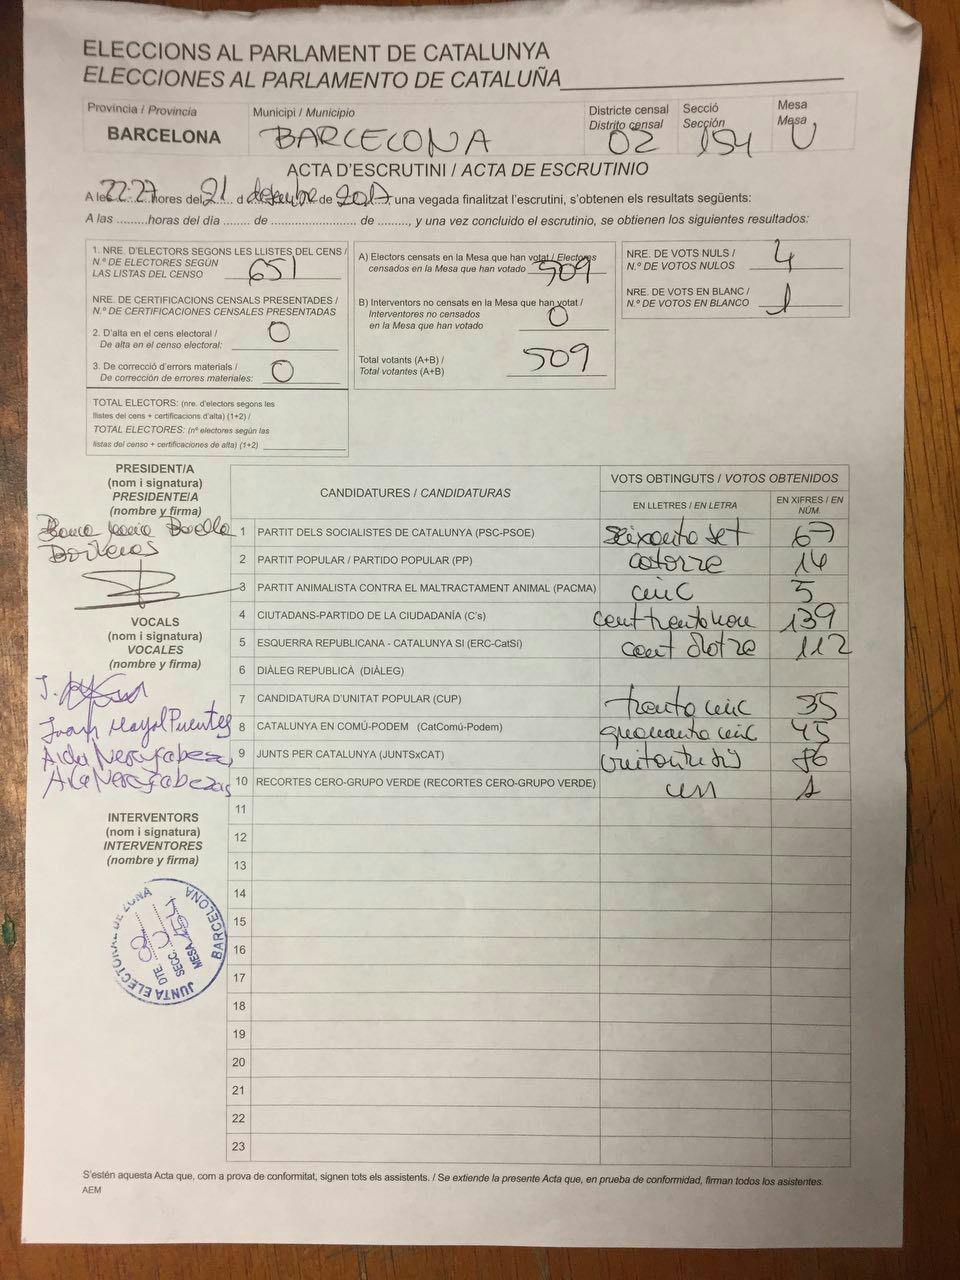 ELECCIONS AL PARLAMENT DE CATALUNYA
ELECCIONES AL PARLAMENTO DE CATALUÑA
Provincia / Provincia
BARCELONA
Municipi / Municipio
BARCELONA
Districte censal
Distrito censal
02
Secció
Sección
154
Mesa
Mesa
U
ACTA D'ESCRUTINI / ACTA DE ESCRUTINIO
A les 22:27 hores del 21 d desembre de 2017 una vegada finalitzat l'escrutini, s'obtenen els resultats següents:
A las .........horas del dia ....... de ....................... de ........, y una vez concluido el escrutinio, se obtienen los siguientes resultados:
1. NRE. D'ELECTORS SEGONS LES LLISTES DEL CENS /
N.º DE ELECTORES SEGÚN
LAS LISTAS DEL CENSO 651
NRE. DE CERTIFICACIONS CENSALS PRESENTADES /
N.º DE CERTIFICACIONES CENSALES PRESENTADAS
2. D'alta en el cens electoral /
De alta en el censo electoral: 0
3. De correcció d'errors materials /
De corrección de errores materiales: 0
TOTAL ELECTORS: (nre. d'electors segons les
llistes del cens + certificacions d'alta) (1+2) /
TOTAL ELECTORES: (nº electores según las
listas del censo + certificaciones de alta) (1+2)
A) Electors censats en la Mesa que han votat / Electores
censados en la Mesa que han votado 509
B) Interventors no censats en la Mesa que han votat /
Interventores no censados
en la Mesa que han votado 0
Total votants (A+B) /
Total votantes (A+B) 509
NRE. DE VOTS NULS /
N.º DE VOTOS NULOS 4
NRE. DE VOTS EN BLANC /
N.º DE VOTOS EN BLANCO 1
PRESIDENT/A
(nom i signatura)
PRESIDENTE/A
(nombre y firma)
VOCALS
(nom i signatura)
VOCALES
(nombre y firma)
Joan Mayol Puentes
INTERVENTORS
(nom i signatura)
INTERVENTORES
(nombre y firma)
JUNTA ELECTORAL DE ZONA
BARCELONA
DTE. 02
SECC. U
MESA 154
CANDIDATURES / CANDIDATURAS
VOTS OBTINGUTS / VOTOS OBTENIDOS
EN LLETRES / EN LETRA
EN XIFRES / EN NÚM.
1 PARTIT DELS SOCIALISTES DE CATALUNYA (PSC-PSOE) seixanta set 67
2 PARTIT POPULAR / PARTIDO POPULAR (PP) catorze 14
3 PARTIT ANIMALISTA CONTRA EL MALTRACTAMENT ANIMAL (PACMA) cinc 5
4 CIUTADANS-PARTIDO DE LA CIUDADANÍA (C's) cent trenta nou 139
5 ESQUERRA REPUBLICANA - CATALUNYA SI (ERC-CatSí) cent dotze 112
6 DIÀLEG REPUBLICÀ (DIÀLEG)
7 CANDIDATURA D'UNITAT POPULAR (CUP) trenta cinc 35
8 CATALUNYA EN COMÚ-PODEM (CatComú-Podem) quaranta cinc 45
9 JUNTS PER CATALUNYA (JUNTSxCAT) vuitanta sis 86
10 RECORTES CERO-GRUPO VERDE (RECORTES CERO-GRUPO VERDE) un 1
11
12
13
14
15
16
17
18
19
20
21
22
23
S'estén aquesta Acta que, com a prova de conformitat, signen tots els assistents. / Se extiende la presente Acta que, en prueba de conformidad, firman todos los asistentes.
AEM